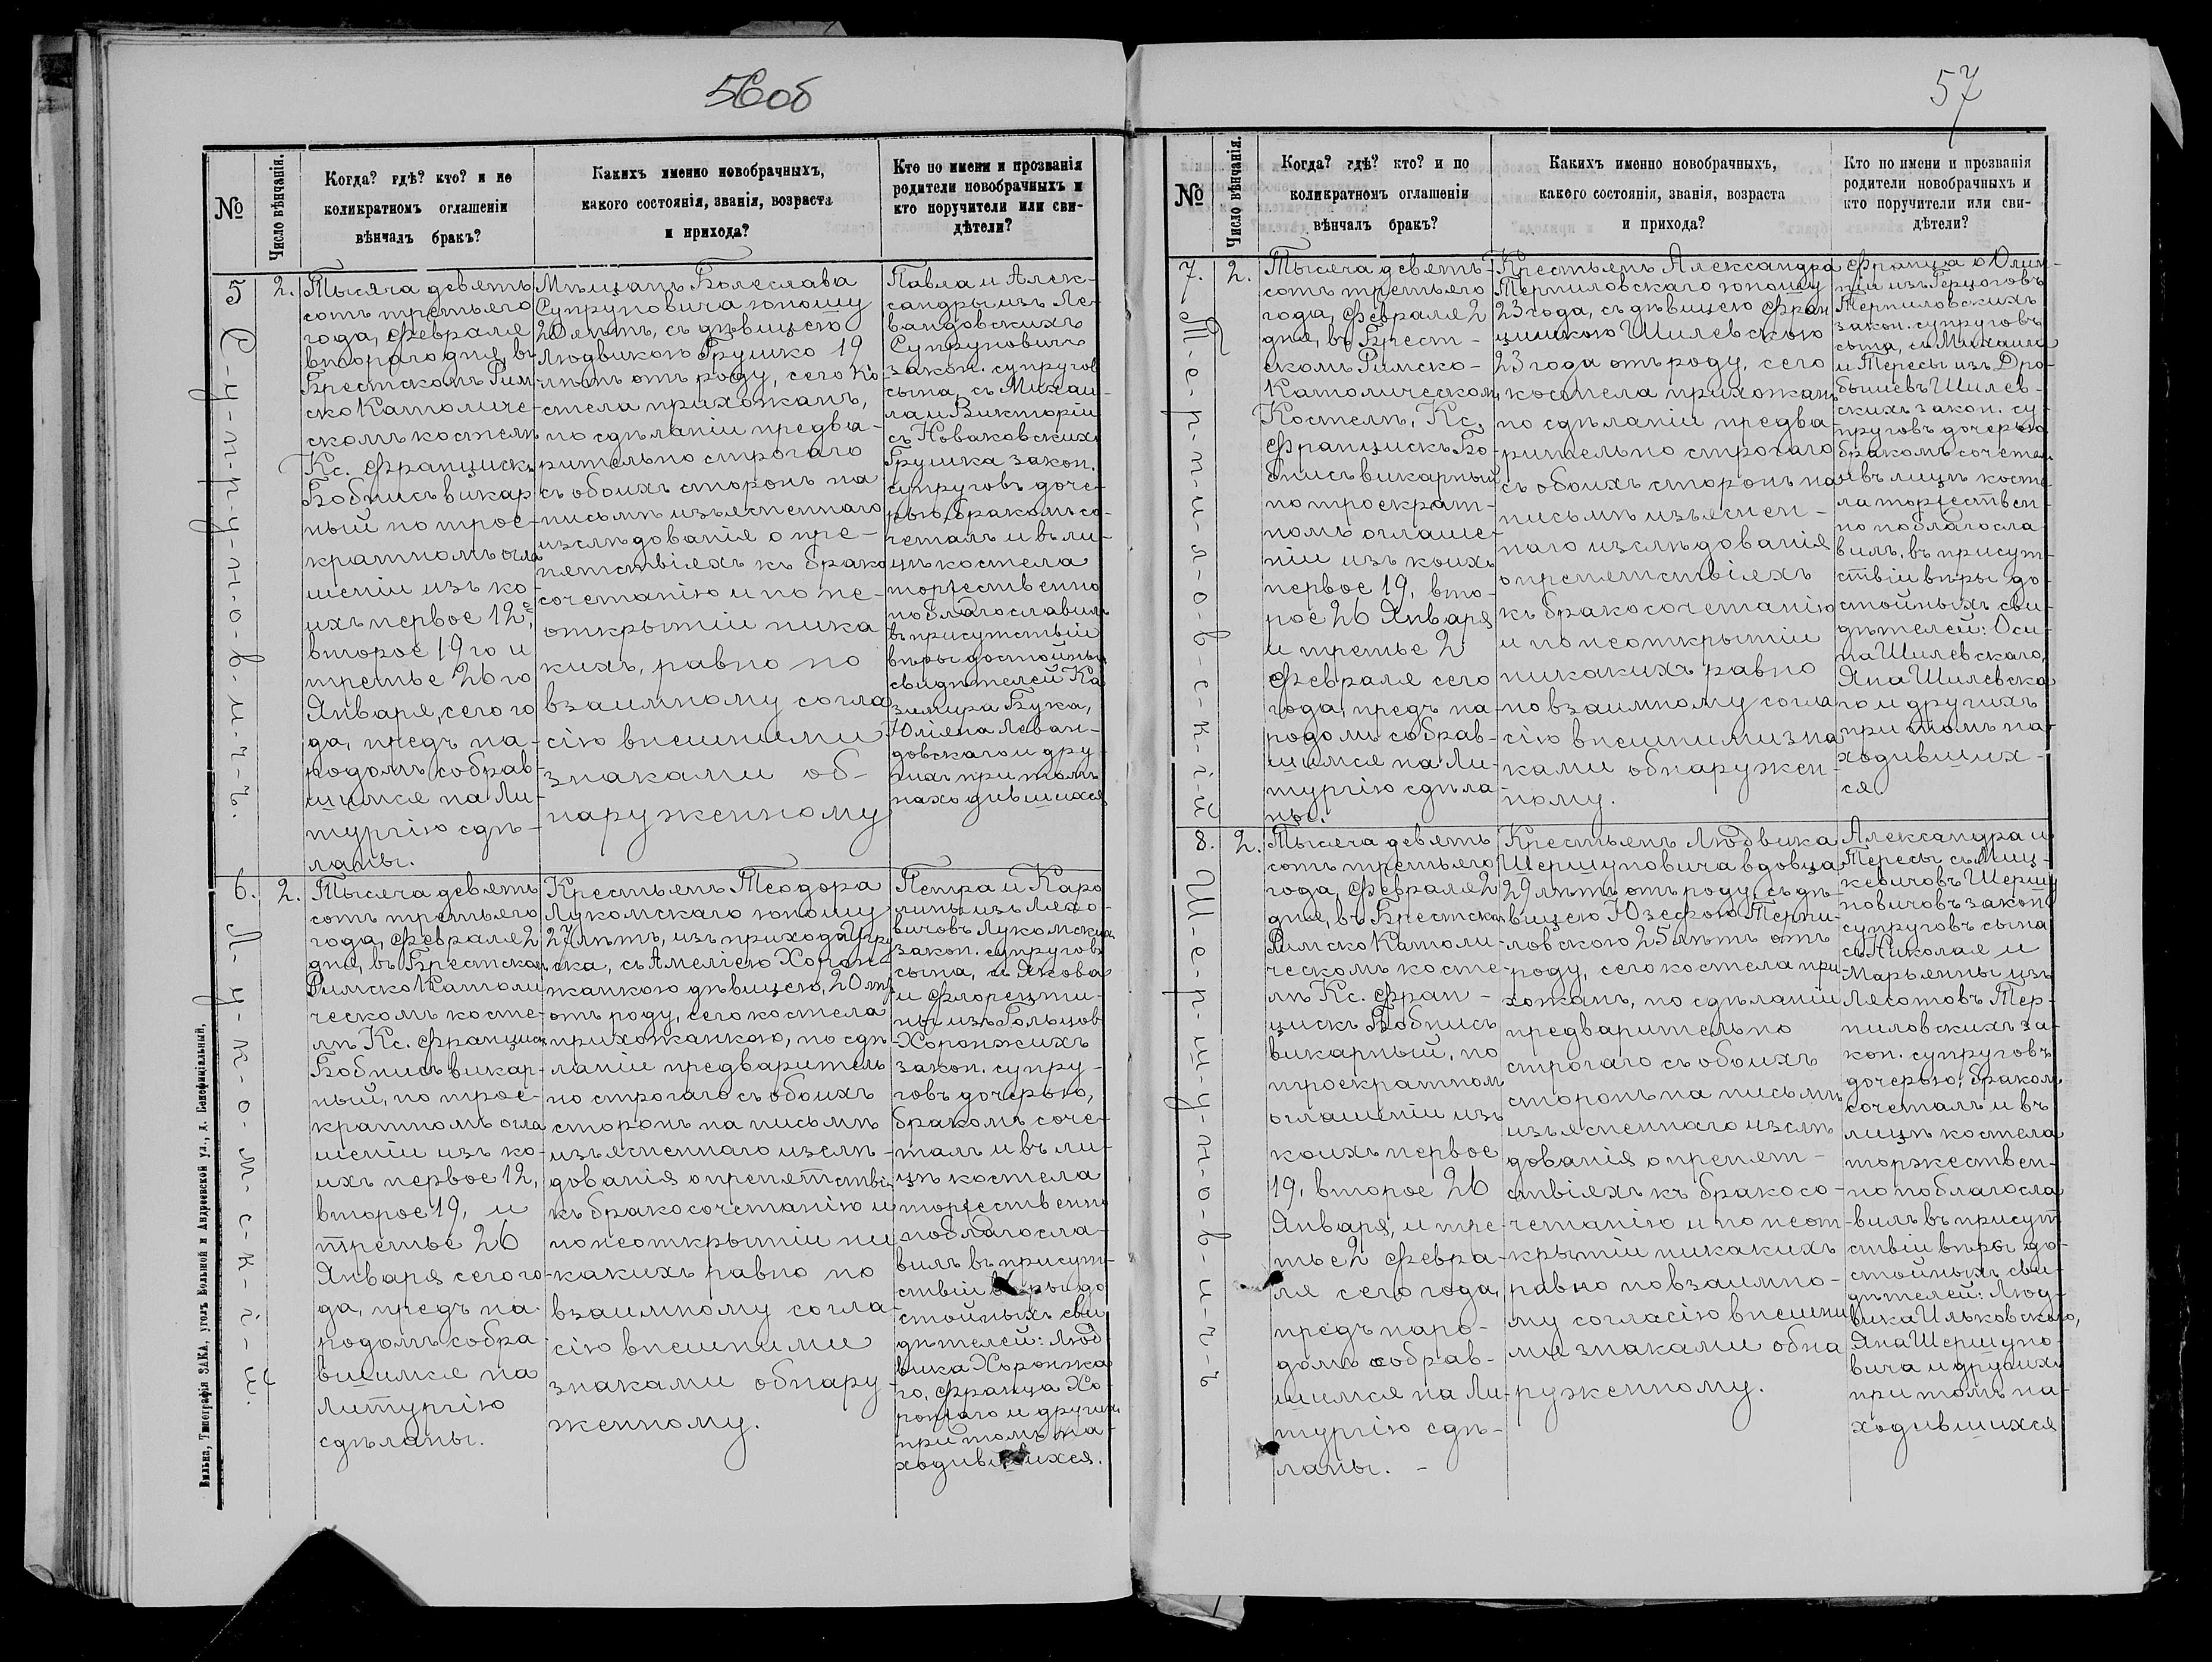 56об
№
Число вѣнчанія.
Когда? гдѣ? кто? и по
коликратномъ оглашеніи
вѣнчалъ бракъ?
Какихъ именно новобрачныхъ,
какого состоянія, званія, возраста
и прихода?
Кто по имени и прозванія
родители новобрачныхъ и
кто поручители или сви-
дѣтели?
5
С-у-п-р-у-н-о-в-и-ч-ъ.
2.
Тысяча девять
сотъ третьяго
года, Февраля
второго дня, въ
Брестскомъ Рим
ско Католиче-
скомъ костелѣ
Кс. Францискъ
Бобнисъ викар
ный по трое-
кратномъ огла
шеніи изъ ко-
ихъ первое 12е
второе 19 го и
третье 26 го
Января, сего го
да, предъ на-
родомъ собрав
шимся на Ли-
тургію сдѣ-
ланы.
Мѣщанъ Болеслава
Супруновича юношу
20 лѣтъ, съ дѣвицею
Людвикою Грушко 19
лѣтъ отъ роду, сего ко-
стела прихожанъ,
по сдѣланіи предва-
рительно строгаго
съ обоихъ сторонъ на
письмѣ изъясненнаго
изслѣдованія о пре-
пятствіяхъ къ брако
сочетанію и по не-
открытіи ника
кихъ, равно по
взаимному согла
сію внешними
знаками об-
наруженному
Павла и Алек-
сандры изъ Ле-
вандовскихъ
Супрунович
закон. супругов
сына, съ Михаи-
ла и Викторіи
съ Новаковских
Грушка закон.
супруговъ доче-
рью, бракомъ со-
четалъ и въ ли-
цѣ костела
торжественно
поблагославилъ
въ присутствіи
вѣры достойных
свидѣтелей Ка
зимира Бука,
Юліяна Леван-
довскаго и дру-
гихъ при томъ
находившихся
6.
Л-у-к-о-м-с-к-і-й.
2.
Тысяча девять
сотъ третьяго
года, Февраля 2
дня, въ Брестском
Римско Католи
ческомъ косте-
лѣ Кс. Францискъ
Бобнисъ викар-
ный, по трое-
кратномъ огла
шеніи изъ ко-
ихъ первое 12,
второе 19, и
третье 26
Января сего го-
да, предъ на-
родомъ собра
вшимся на
Литургію
сдѣланы.
Крестьянъ Теодора
Лукомскаго юношу
27 лѣтъ, изъ прихода
ска, съ Амеліею Хорон-
жанкою дѣвицею, 20 лѣт
отъ роду, сего костела
прихожанкою, по сдѣ-
ланіи предваритель
но строгаго съ обоихъ
сторонъ на письмѣ
изъясненнаго изслѣ-
дованія о препятствія
къ бракосочетанію и
по неоткрытіи ни
какихъ равно по
взаимному согла-
сію внешними
знаками обнару-
женному.
Петра и Каро
лины изъ Ляхо-
вичовъ Лукомских
закон. супруговъ
сына, съ Якова
и Флоренти-
ны изъ Гольцов
Хоронжихъ
закон. супру-
говъ дочерью,
бракомъ соче-
талъ и въ ли-
цѣ костела
торжественно
поблагосла-
вилъ въ присут-
ствіи вѣры до
стойныхъ сви
дѣтелей: Люд
вика Хоронжа
го, Франца Хо-
ронжаго и других
при томъ на
ходившихся.
Вильна, Типографія ЗАКА, уголъ Большой и Андреевской ул., д. Бенефиціальный,
57
№
Число вѣнчанія.
Когда? гдѣ? кто? и по
коликратномъ оглашеніи
вѣнчалъ бракъ?
Какихъ именно новобрачныхъ,
какого состоянія, званія, возраста
и прихода?
Кто по имени и прозванія
родители новобрачныхъ и
кто поручители или сви-
дѣтели?
7.
Т-е-р-п-и-л-о-в-с-к-і-й
2.
Тысяча девять-
сотъ третьяго
года, Февраля 2
дня, въ Брест-
скомъ Римско-
Католическом
Костелѣ, Кс.
Францискъ Бо-
бнисъ викарный
по троекрат-
номъ оглаше-
ніи изъ коихъ
первое 19, вто-
рое 26 Января
и третье 2
Февраля сего
года, предъ на-
родомъ собрав-
шимся на Ли-
тургію сдѣла
ны.
Крестьянъ Александра
Терпиловскаго юношу
23 года, съ дѣвицею Фран
цишкою Шилевскою
23 года отъ роду, сего
костела прихожанъ
по сдѣланіи предва-
рительно строгаго
съ обоихъ сторонъ на
письмѣ изъяснен-
наго изслѣдованія
о препятствіяхъ
къ бракосочетанію
и по неоткрытіи
никакихъ равно
по взаимному согла
сію внешними зна
ками обнаружен-
ному.
Франца и Олим-
піи изъ Герцоговъ
Терпиловскихъ
закон. супруговъ
сына, съ Михаила
и Тересы изъ Дро-
бышевъ Шилев-
скихъ закон. су-
пруговъ дочерью
бракомъ сочетал
и въ лицѣ косте-
ла торжествен-
но поблагосла
вилъ, въ присут-
ствіи вѣры до-
стойныхъ сви-
дѣтелей: Оси-
па Шилевскаго,
Яна Шилевска
го и другихъ
при томъ на-
ходивших-
ся.
8.
Ш-е-р-ш-у-н-о-в-и-ч-ъ
2.
Тысяча девять
сотъ третьяго
года, Февраля 2
дня, въ Брестском
Римско Католи-
ческомъ косте-
лѣ Кс. Фран-
цискъ Бобнисъ
викарный, по
троекратном
оглашеніи изъ
коихъ первое
19, второе 26
Января, и тре-
тье 2 Февра-
ля сего года,
предъ наро-
домъ собрав-
шимся на Ли-
тургію сдѣ-
ланы. -
Крестьянъ Людвика
Шершуновича вдовца
29 лѣтъ отъ роду, съ дѣ-
вицею Юзефою Терпи-
ловскою 25 лѣтъ отъ
роду, сего костела при-
хожанъ, по сдѣланіи
предварительно
строгаго съ обоихъ
сторонъ на письмѣ
изъясненнаго изслѣ
дованія о препят-
ствіяхъ къ бракосо-
четанію и по неот-
крытіи никакихъ
равно по взаимно-
му согласію внешни
ми знаками обна
руженному.
Александра и
Тересы съ Миц-
кевичовъ Шершу
новичовъ закон.
супруговъ сына
съ Николая и
Марьянны изъ
Лясотовъ Тер-
пиловскихъ за-
кон. супруговъ
дочерью, браком
сочеталъ и въ
лицѣ костела
торжествен-
но поблагосла
вилъ въ присут
ствіи вѣры до-
стойныхъ сви-
дѣтелей: Люд-
вика Ильковскаго,
Яна Шершуно-
вича и другихъ
при томъ на-
ходившихся